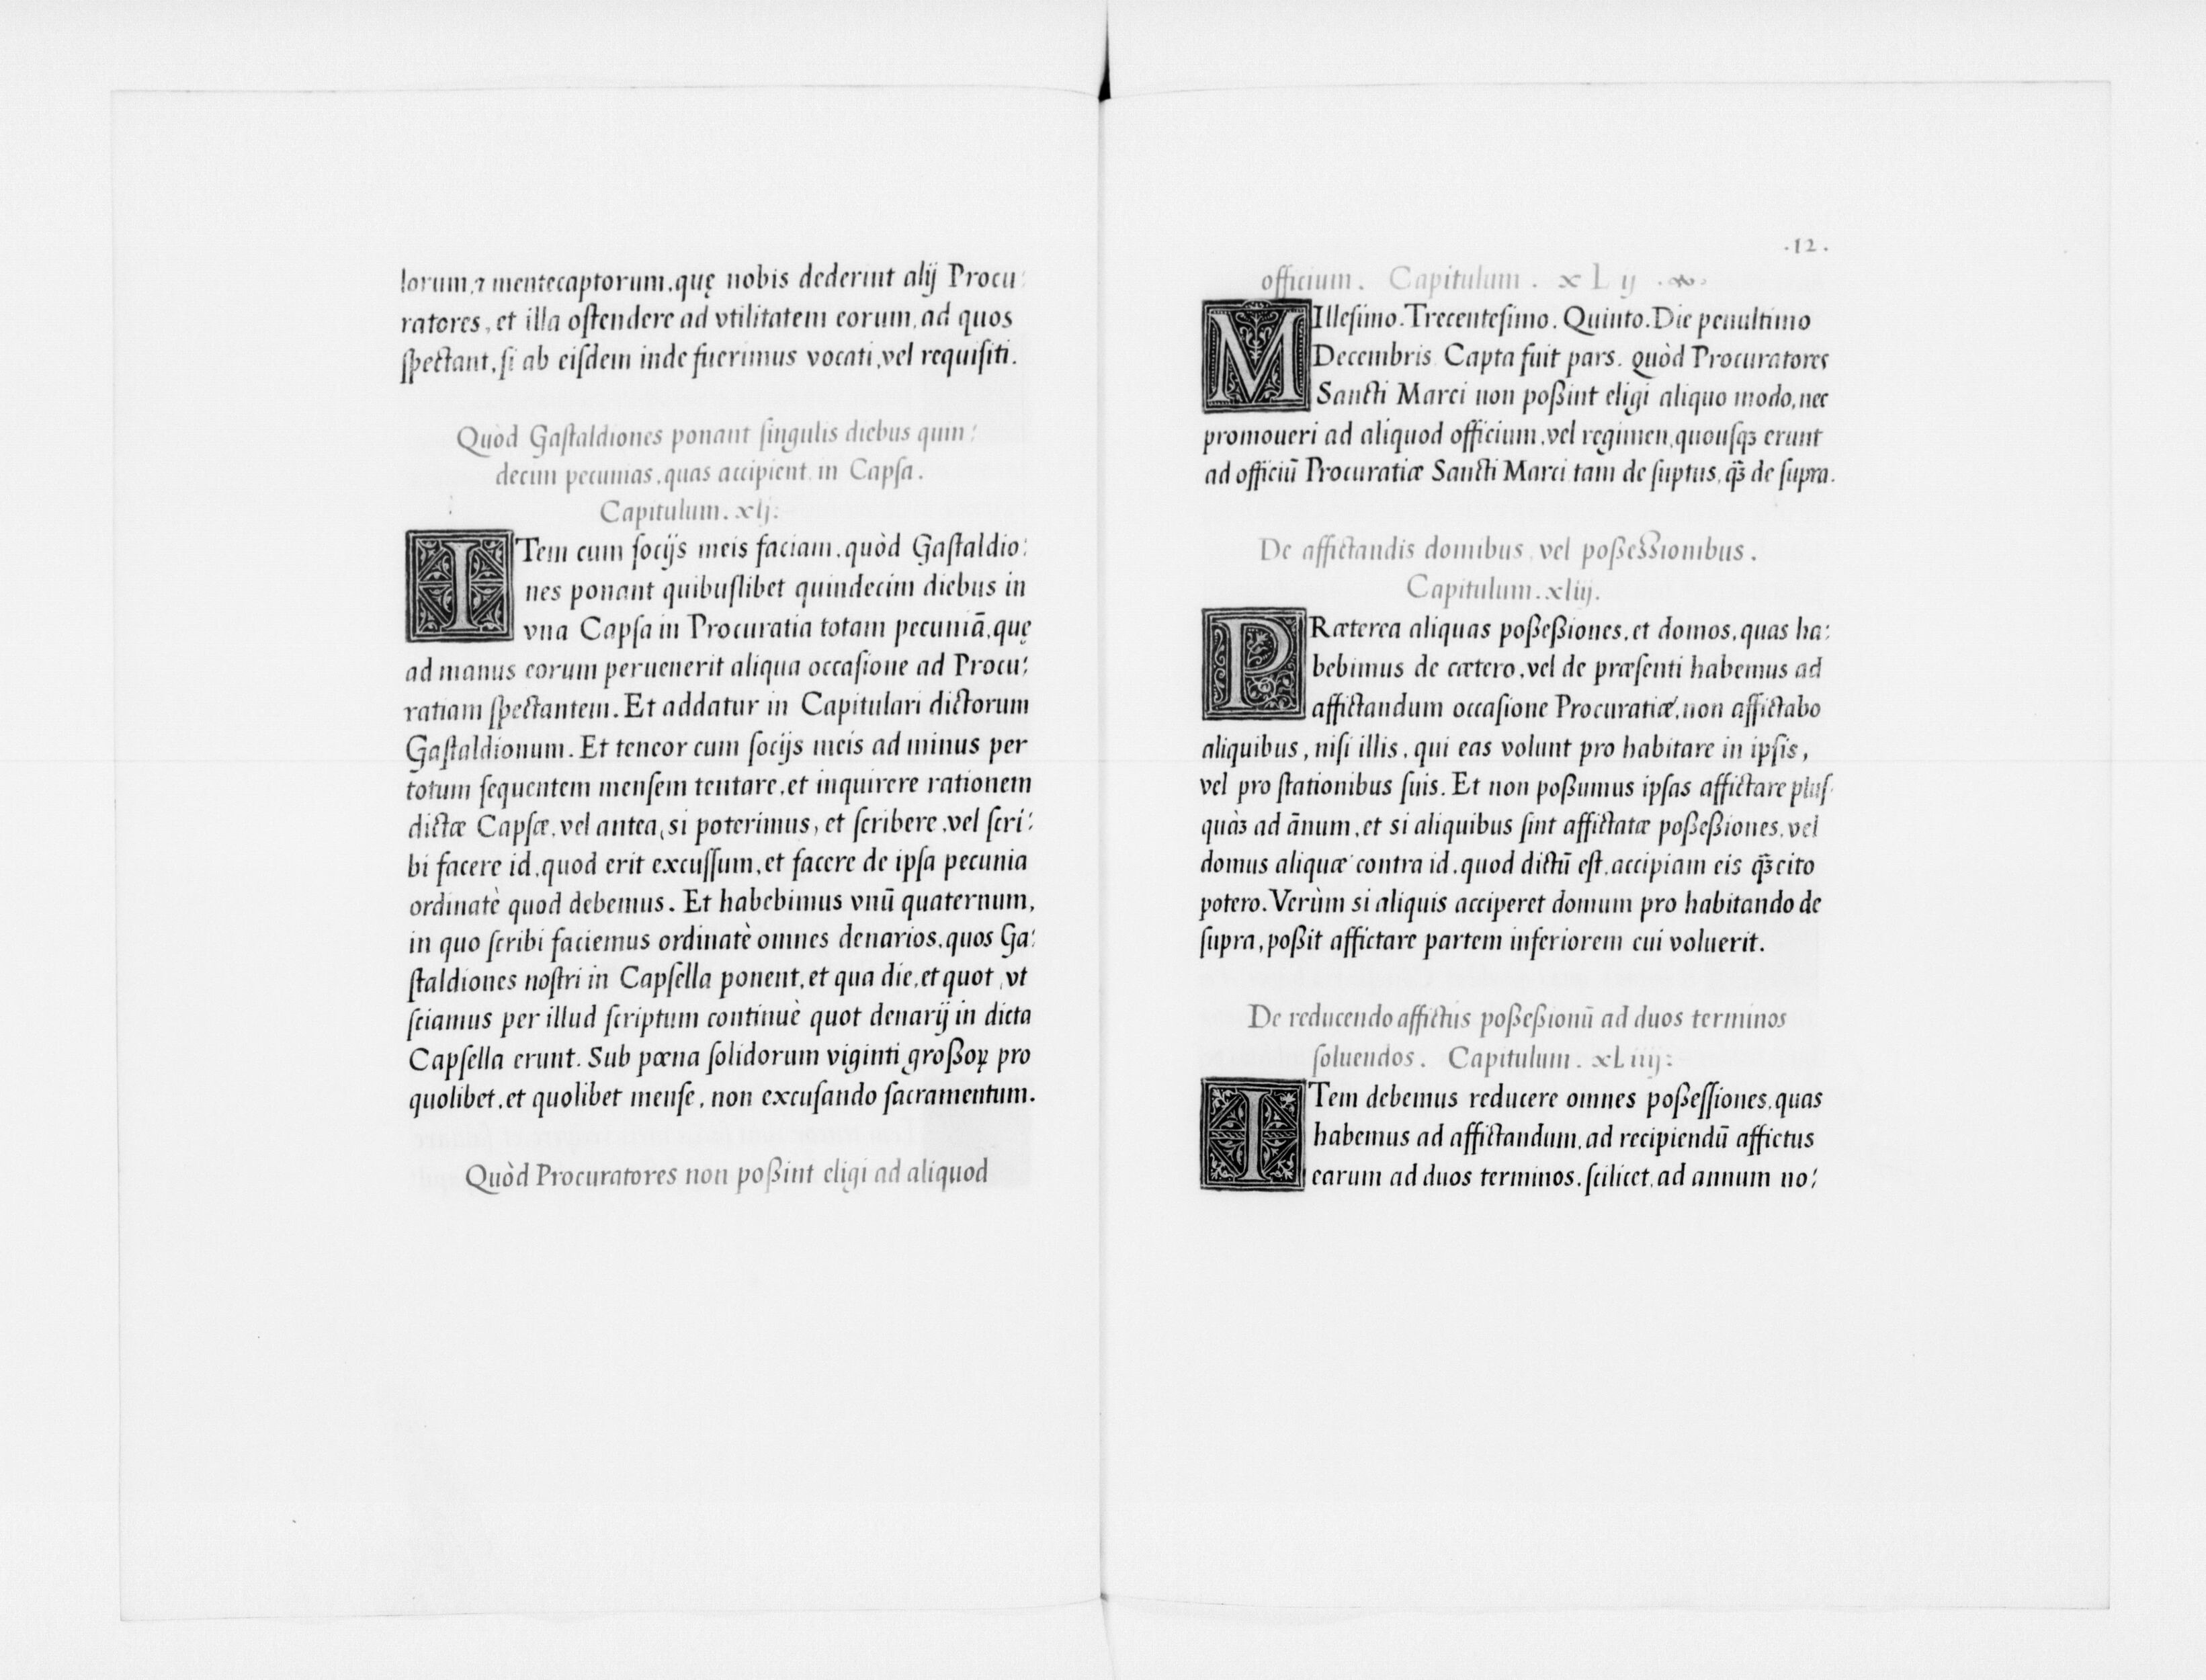 lorum,⁊ mentecaptorum,quę nobis dederint alij Procu:
ratores, et illa oſtendere ad vtilitatem eorum, ad quos
ſpectant, ſi ab eiſdem inde fuerimus vocati, vel requiſiti.
Quòd Gaſtaldiones ponant ſingulis diebus quin:
decim pecunias, quas accipient in Capſa.
Capitulum. xlj:
ITem cum ſocijs meis faciam, quòd Gaſtaldio:
nes ponant quibuſlibet quindecim diebus in
vna Capſa in Procuratia totam pecuniā, quę
ad manus eorum peruenerit aliqua occaſione ad Procu:
ratiam ſpectantem. Et addatur in Capitulari dictorum
Gaſtaldionum. Et teneor cum ſocijs meis ad minus per
totum ſequentem menſem tentare, et inquirere rationem
dictæ Capſæ, vel antea, si poterimus, et ſcribere, vel ſcri:
bi facere id, quod erit excuſſum, et facere de ipſa pecunia
ordinatè quod debemus. Et habebimus vnū quaternum,
in quo ſcribi faciemus ordinatè omnes denarios, quos Ga:
ſtaldiones noſtri in Capſella ponent, et qua die, et quot, vt
ſciamus per illud ſcriptum continuè quot denarij in dicta
Capſella erunt. Sub pœna ſolidorum viginti großoꝝ pro
quolibet, et quolibet menſe, non excuſando ſacramentum.
Quòd Procuratores non poßint eligi ad aliquod
.12.
officium. Capitulum. xLij
MIlleſimo. Trecenteſimo. Quinto. Die penultimo
Decembris Capta fuit pars. quòd Procuratores
Sancti Marci non poßint eligi aliquo modo, nec
promoueri ad aliquod officium, vel regimen, quouſqꝫ erunt
ad officiū Procuratiæ Sancti Marci tam de ſuptus, q̃ꝫ de ſupra.
De affictandis domibus, vel poßeßionibus.
Capitulum. xliij.
PRæterea aliquas poßeßiones, et domos, quas ha:
bebimus de cætero, vel de præſenti habemus ad
affictandum occaſione Procuratiæ, non affictabo
aliquibus, niſi illis, qui eas volunt pro habitare in ipſis,
vel pro ſtationibus ſuis. Et non poßumus ipſas affictare pluſ-
quàꝫ ad ānum, et si aliquibus ſint affictatæ poßeßiones, vel
domus aliquæ contra id, quod dictū eſt, accipiam eis q̃ꝫ cito
potero. Verùm si aliquis acciperet domum pro habitando de
ſupra, poßit affictare partem inferiorem cui voluerit.
De reducendo affictus poßeßionū ad duos terminos
ſoluendos. Capitulum. xLiiij:
ITem debemus reducere omnes poßeſſiones, quas
habemus ad affictandum, ad recipiendū affictus
earum ad duos terminos, ſcilicet, ad annum no: